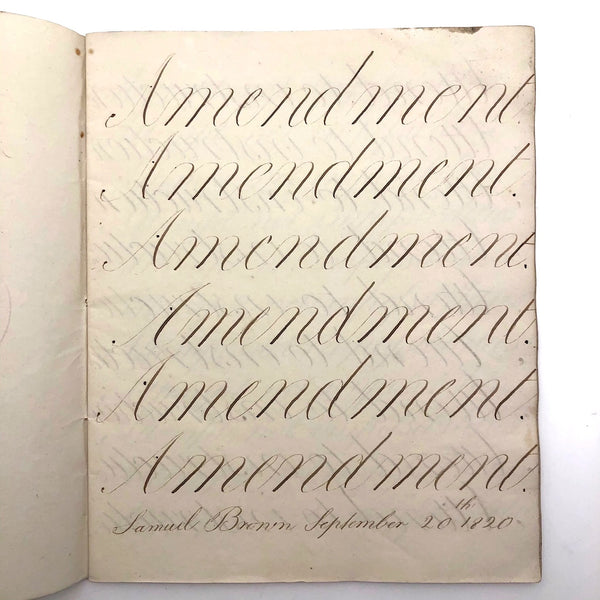 Amendment.
Amendment.
Amendment.
Amendment.
Amendment.
Amendment.
Samuel Brown September 20th 1820